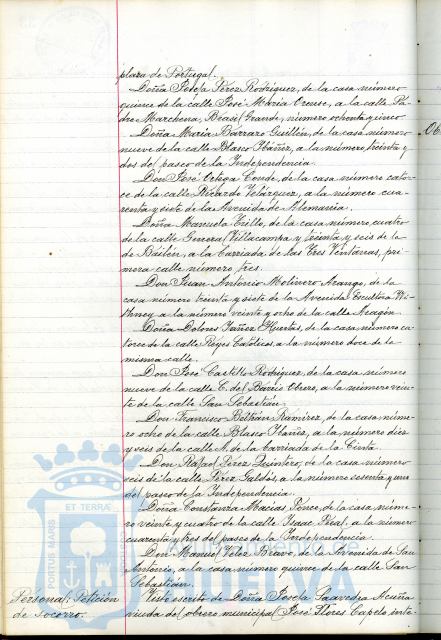 plaza de Portugal.
Doña Josefa Pérez Rodríguez, de la casa número
quince de la calle José María Orense, a la calle Pa-
dre Marchena, Bcas Grande, número ochenta y cinco
Doña María Barraro Guillén, de la casa número
nueve de la calle Blasco Ibáñez, a la número treinta y
dos del paseo de la Independencia.
Don José Ortega Conde, de la casa número cator-
ce de la calle Ricardo Velázquez, a la número cua-
renta y siete de la Avenida de Alemania.
Doña Manuela Trillo, de la casa número cuatro
de la calle General Villacampa y treinta y seis de la
de Bailén, a la Barriada de las Tres Ventanas, pri-
mera calle número tres.
Don Juan Antonio Molinero Arango, de la
casa número treinta y siete de la Avenida Escultora Wi-
thney a la número veinte y ocho de la calle Aragón.
Doña Dolores Yañez Huertas, de la casa número ca-
torce de la calle Reyes Católicos, a la número doce de la
misma calle.
Don José Castillo Rodríguez, de la casa número
nueve de la calle C. del Barrio Obrero, a la número vein-
te de la calle San Sebastián.
Don Francisco Beltrán Ramírez, de la casa núme-
ro ocho de la calle Blasco Ibáñez, a la número diez
y seis de la calle A. de la barriada de la Cinta.
Don Rafael Pérez Quintero, de la casa número
seis de la calle Pérez Galdós, a la número sesenta y uno
del paseo de la Independencia.
Doña Constanza Macías Ponce, de la casa núme-
ro veinte y cuatro de la calle Isaac Peral, a la número
cuarenta y tres del paseo de la Independencia.
Don Manuel Vélez Bravo, de la Avenida de San
Antonio, a la casa número quince de la calle San
Sebastián.
Personal: Petición
de socorro.
Visto escrito de Doña Josefa Saavedra Acuña
viuda del obrero municipal José Flores Capelo inte-
06
PORTUS MARIS
ET TERRÆ
HUELVA